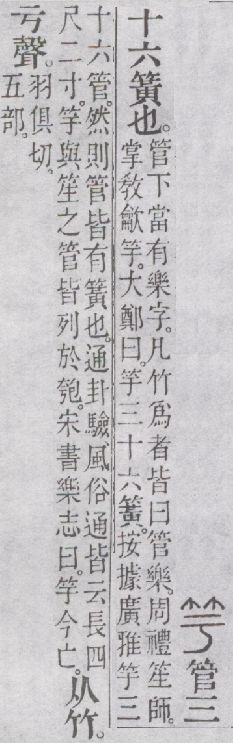 竽管三
十六簧也。
管下當有樂字。凡竹爲者皆曰管樂。周禮笙師。
掌敎龡竽。大鄭曰。竽三十六簧。按據廣雅竽三
十六管。然則管皆有簧也。通卦驗風俗通皆云長四
尺二寸。竽與笙之管皆列於匏。宋書樂志曰。竽今亡。
从竹。
亏聲。
羽俱切。
五部。